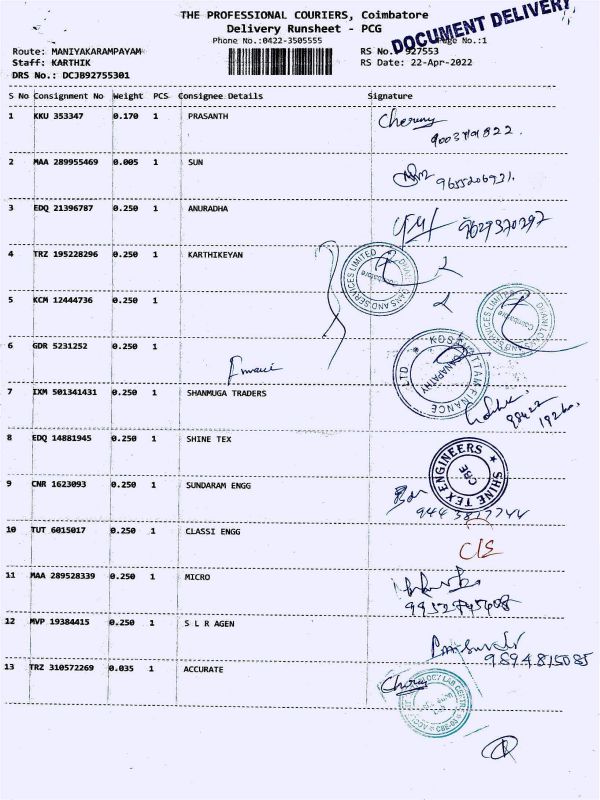 THE PROFESSIONAL COURIERS, Coimbatore
Delivery Runsheet - PCG
DOCUMENT DELIVERY
Phone No.:0422-3505555 Page No.:1
Route: MANIYAKARAMPAYAM RS No. 927553
Staff: KARTHIK RS Date: 22-Apr-2022
DRS No.: DCJB92755301
S No Consignment No Weight PCS Consignee Details Signature
1 KKU 353347 0.170 1 PRASANTH
2 MAA 289955469 0.005 1 SUN
9655206931.
3 EDQ 21396787 0.250 1 ANURADHA
9629370397
4 TRZ 195228296 0.250 1 KARTHIKEYAN
5 KCM 12444736 0.250 1
6 GDR 5231252 0.250 1
KOSAMATTAM FINANCE LTD
GANAPATHY
7 IXM 501341431 0.250 1 SHANMUGA TRADERS
8 EDQ 14881945 0.250 1 SHINE TEX
SHINE TEX ENGINEERS
CBE
9 CNR 1623093 0.250 1 SUNDARAM ENGG
10 TUT 6015017 0.250 1 CLASSI ENGG
C/S
11 MAA 289528339 0.250 1 MICRO
12 MVP 19384415 0.250 1 S L R AGEN
9894815085
13 TRZ 310572269 0.035 1 ACCURATE